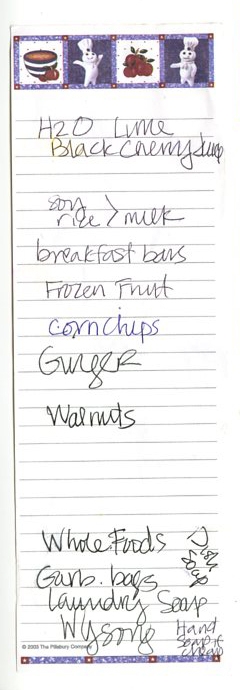 H2O Lime
Black Cherry
soy
rice > milk
breakfast bars
Frozen Fruit
Corn Chips
Ginger
Walnuts
Whole Foods
Garb. bags
Laundry Soap
Wysong
Hand
soap if
cheap
© 2003 The Pillsbury Company